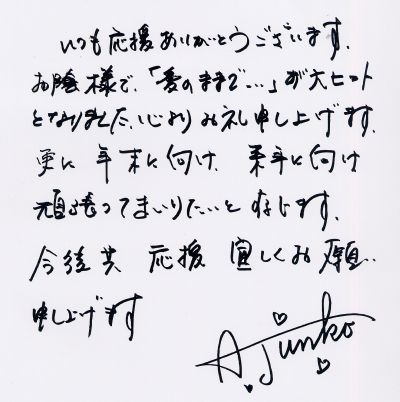 いつも応援ありがとうございます.
お陰様で、「愛のままで…」が大ヒット
となりました、心よりお礼申し上げます.
更に 年末に向け、来年に向け
頑張ってまいりたいと 存じます.
今後共 応援 宜しくお願い
申し上げます
A.junko